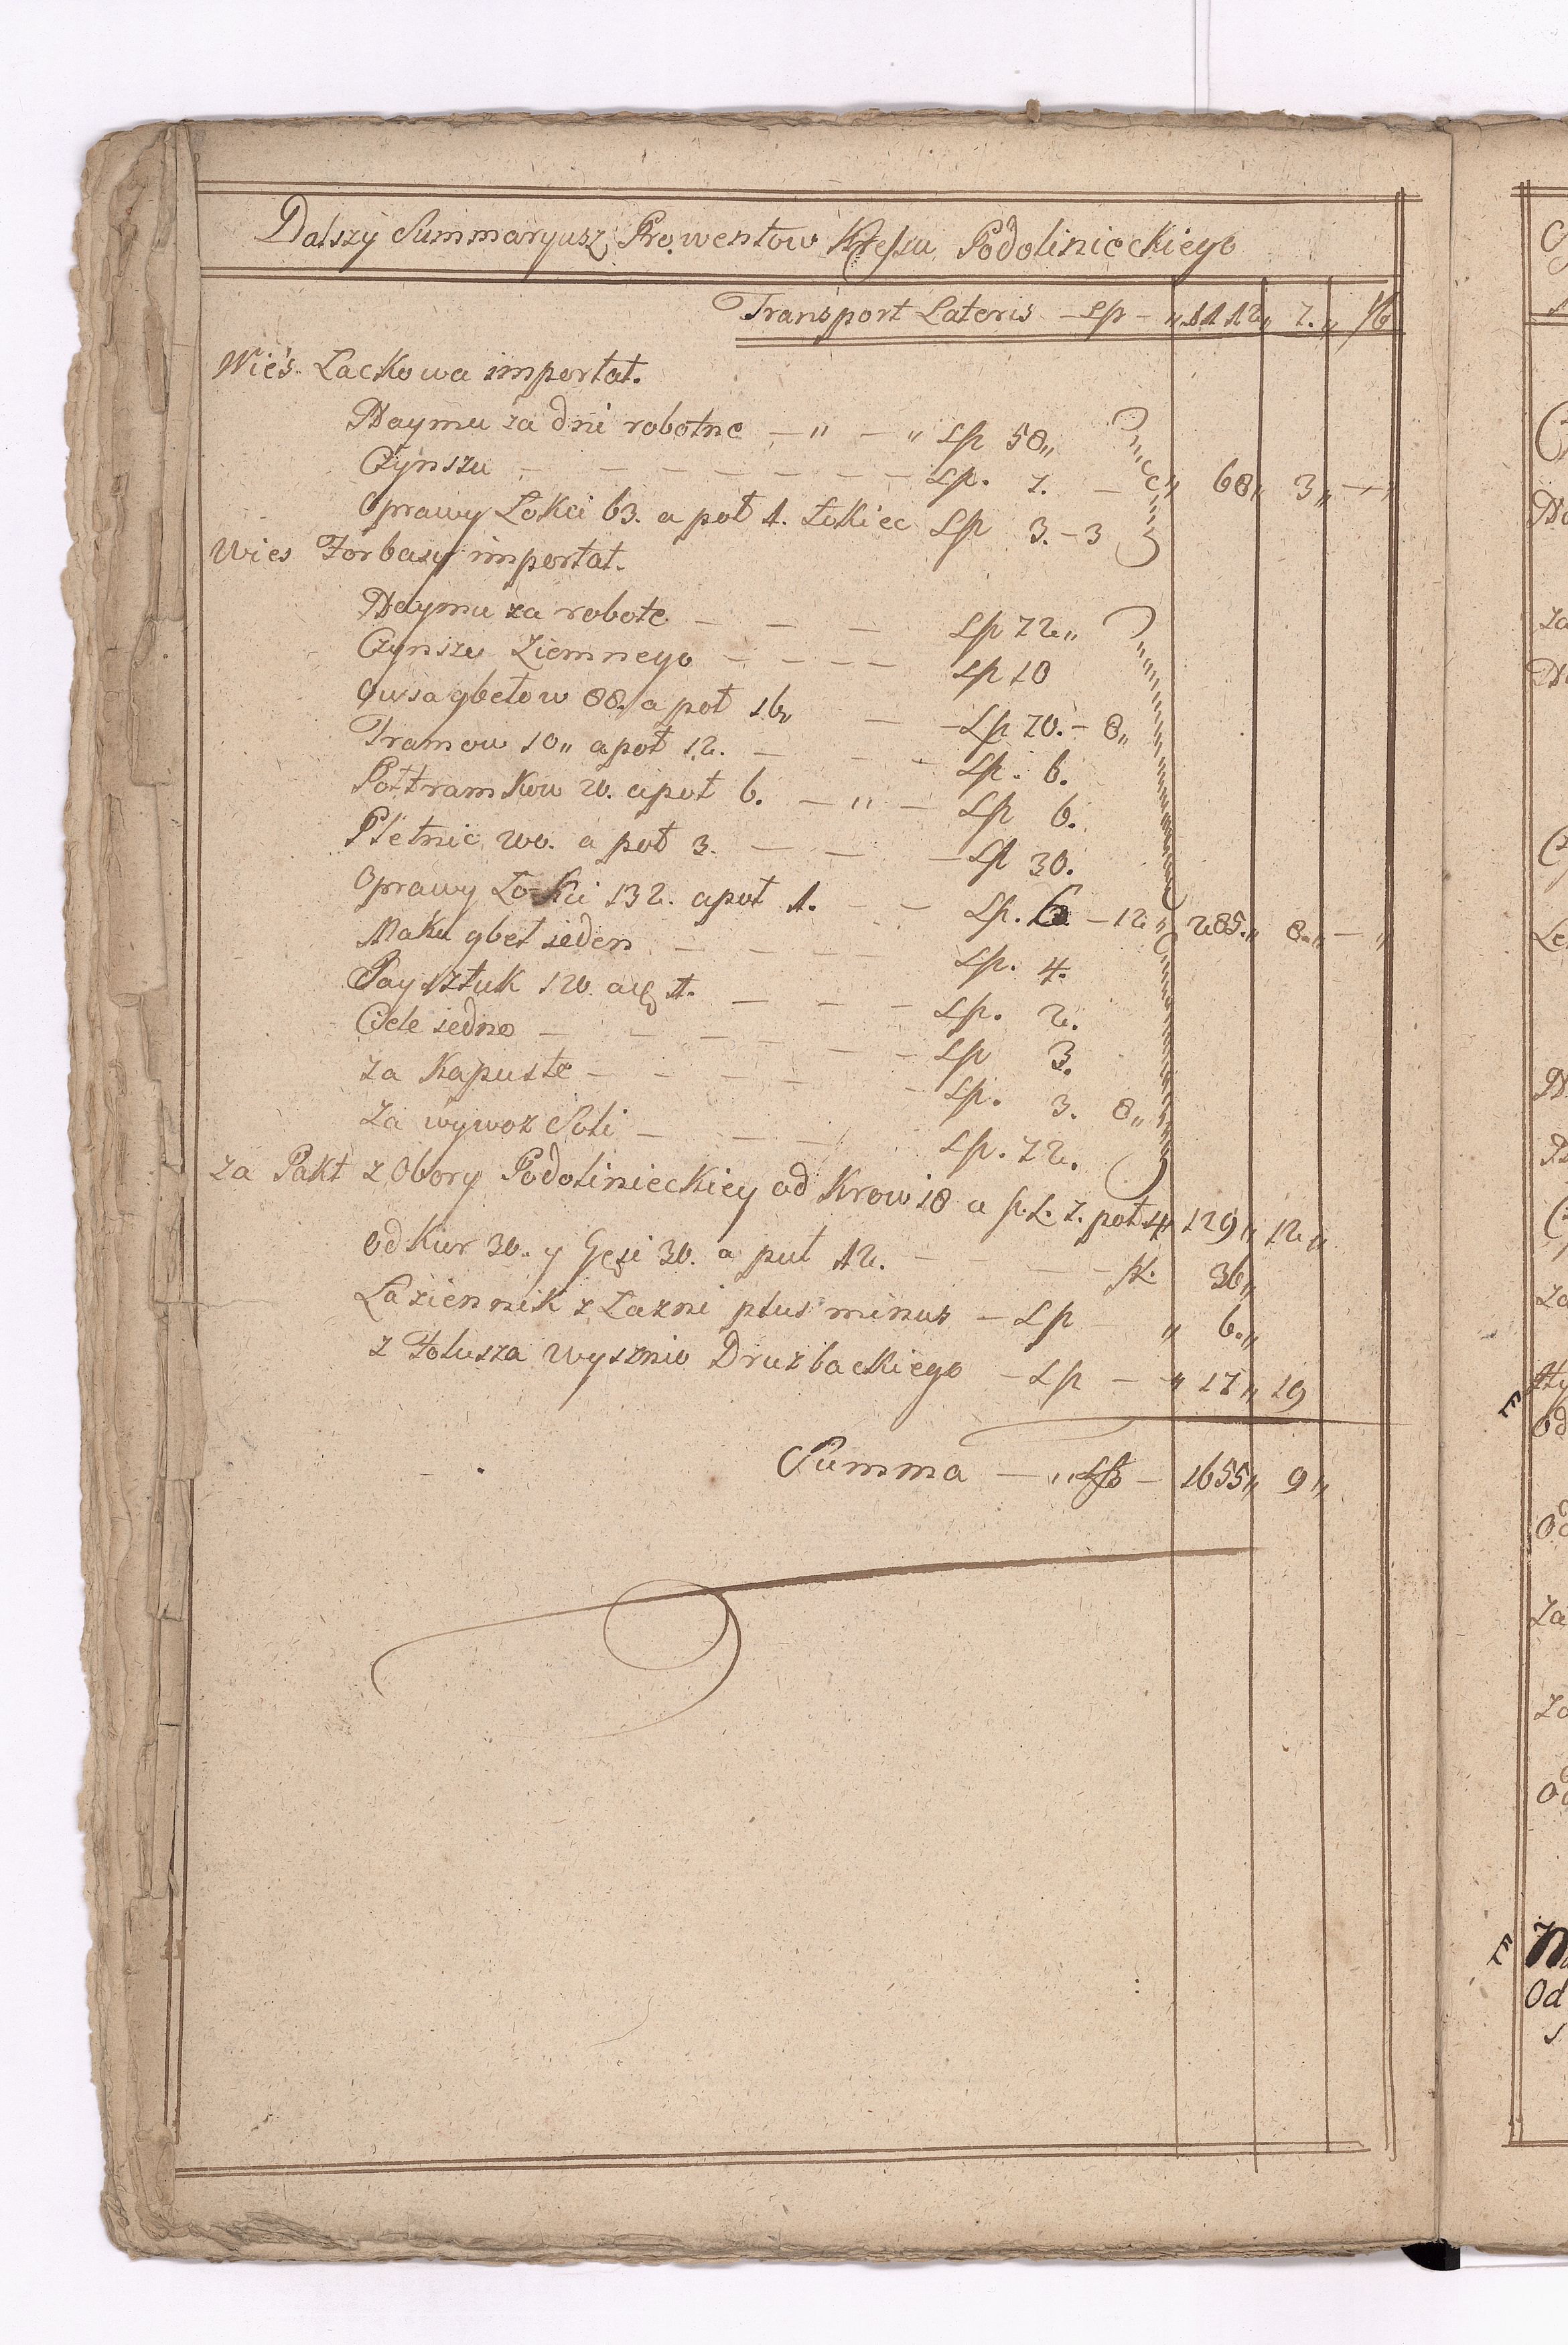 Dalszy Summaryusz Prowentow Kressu Podolinieckiego
Transport Lateris — Lp — „ 1112„ 7.„ 1/6
Wieś Lackowa importat.
Naymu za dni robotne — „ — „ Lp 58„
Czynszu — — — — — — — Lp. 7. — „ 68„ 3„ — „
Oprawy Lokci 63. a poł 1. Łokiec Lp 3. – 3
Wies Forbasy importat.
Naymu za robote — — — Lp 72„
Czynszu Ziemnego — — — — Lp 10
Owsa gbełow 88. a poł 16„ — — Lp 70. – 8„
Tramow 10„ a poł 12. — — — Lp. 6.
Połtramkow 20. a poł 6. — „ — Lp 6.
Pletnic 200. a poł 3. — — — Lp 30.
Oprawy Łokci 132. a poł 1. — — Lp. 6 – 12„ 285.„ 8.„ — „
Maku gbeł ieden — — — — Lp. 4.
Jay sztuk 120. a g 1. — — — Lp. 2.
Ciele iedno — — — — — — Lp 3.
Za Kapuste — — — — — Lp. 3. 8„
Za wywoz Soli — — — Lp. 72.
Za Pakt z Obory Podolinieckiey od Krow 18 a p. L. 7. poł 4 129„ 12„
Od Kur 30. y Gęsi 30. a puł 12. — — — — 36„
Laziennik z Lazni plus minus — Lp — „ 6.„
z Folusza Wysznio Druzbackiego — Lp — „ 17„ 19
Summa — „ Lp — 1655„ 9„